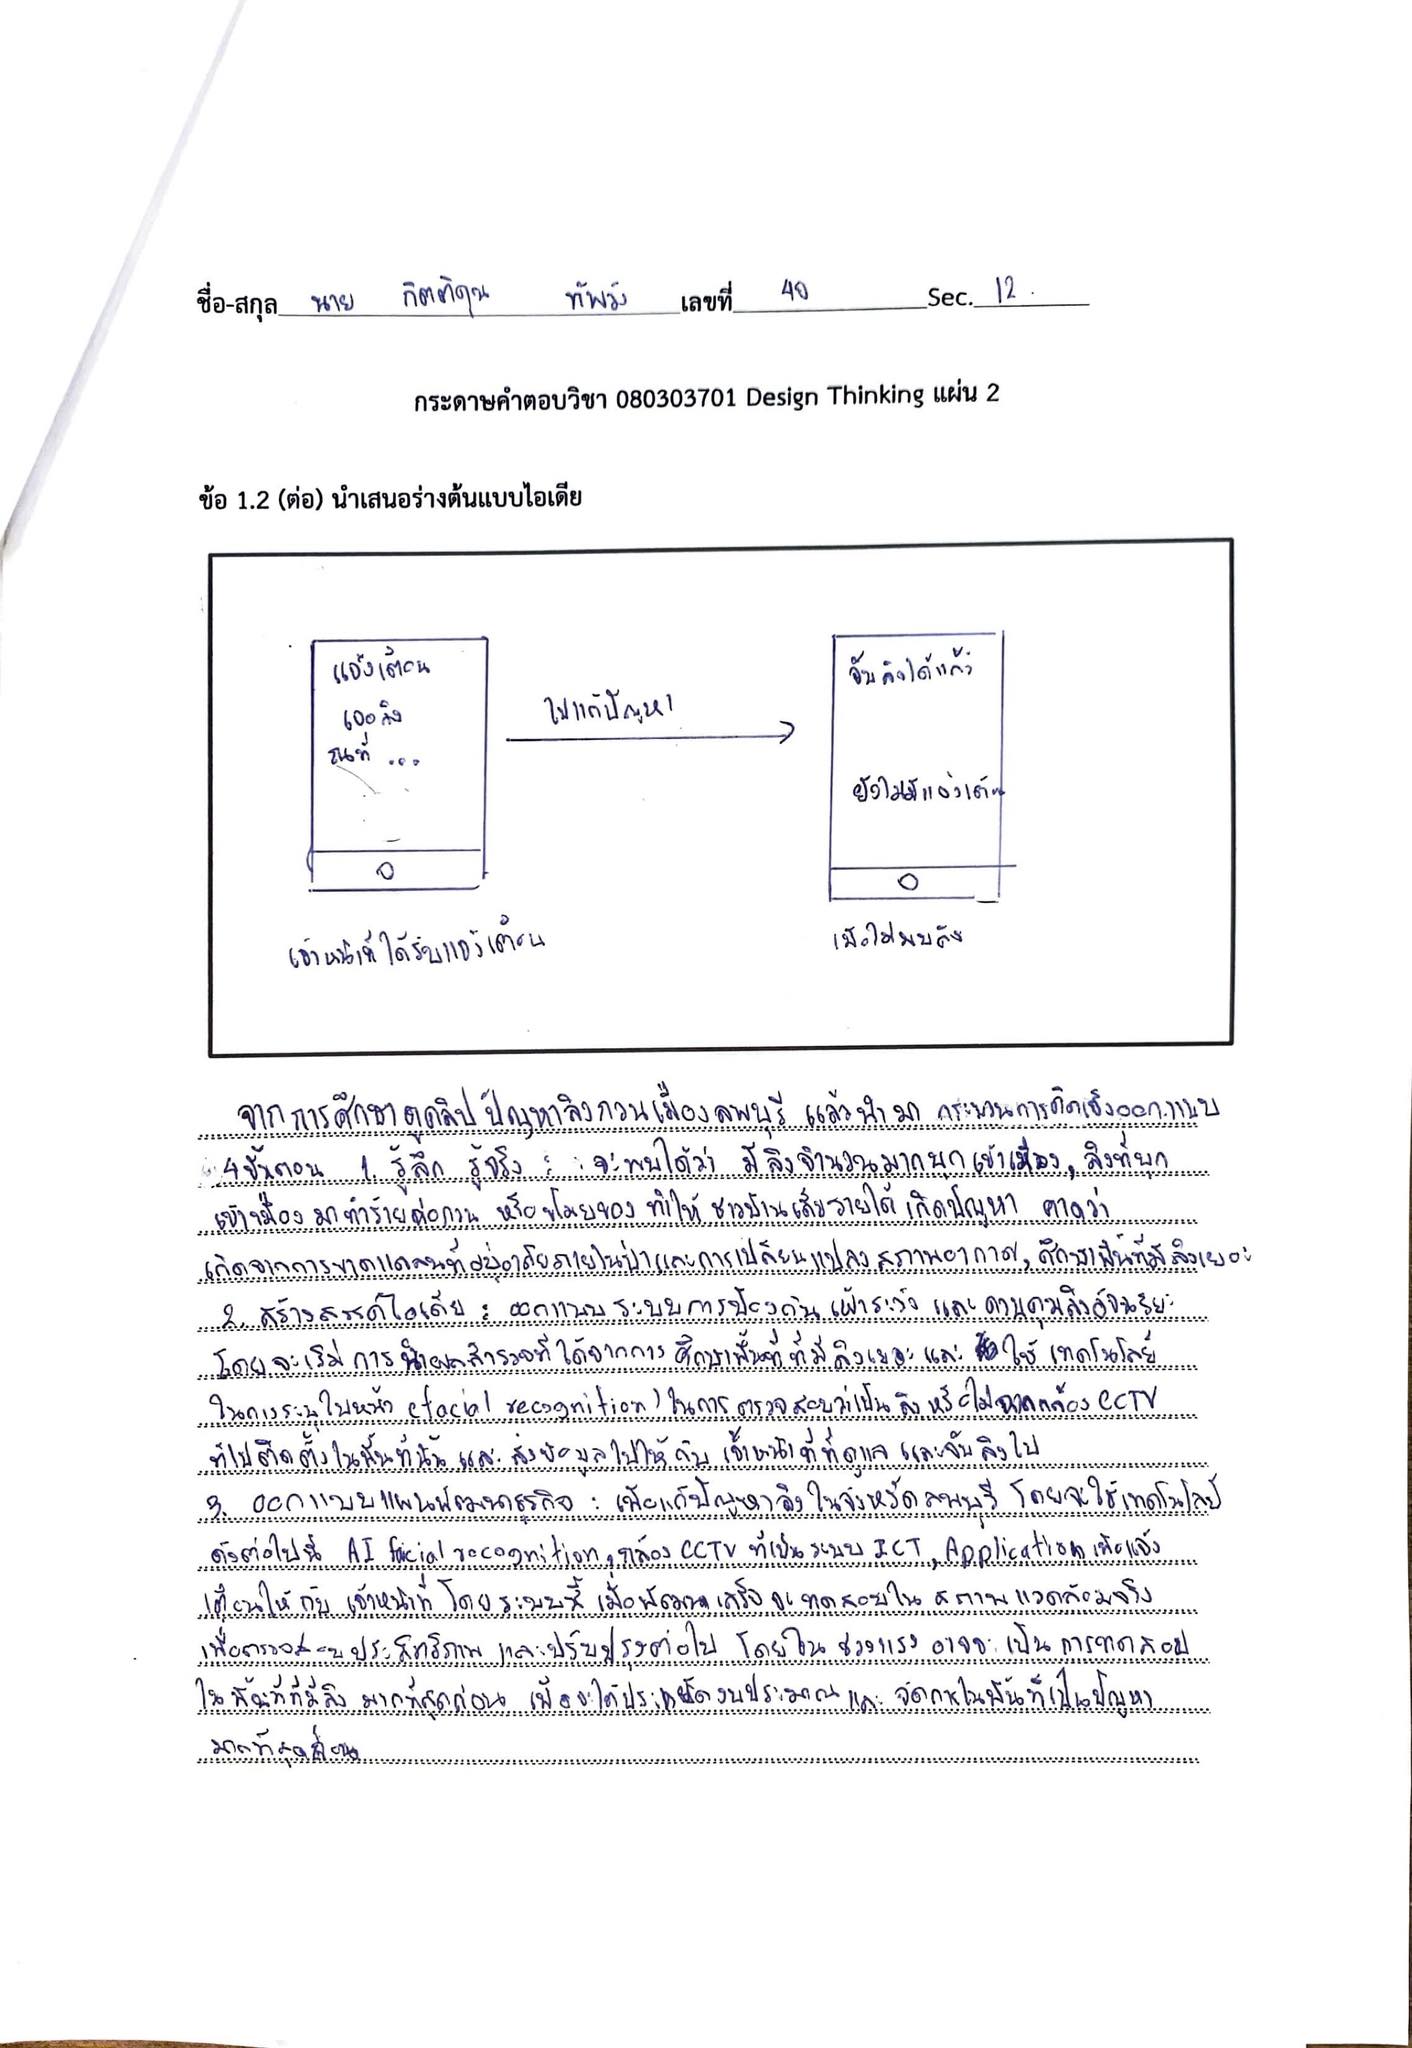 ชื่อ-สกุล นาย กิตติคุณ ทัพวัง เลขที่ 40 Sec. 12
กระดาษคำตอบวิชา 080303701 Design Thinking แผ่น 2
ข้อ 1.2 (ต่อ) นำเสนอร่างต้นแบบไอเดีย
แจ้งเตือน
เจอลิง
ณที่ ...
ไปแก้ปัญหา
จับลิงได้แล้ว
ยังไม่มีแจ้งเตือน
เจ้าหน้าที่ได้รับแจ้งเตือน
เมื่อไม่พบลิง
จากการศึกษาดูคลิปปัญหาลิงกวนเมืองลพบุรี แล้วนำมา กระบวนการคิดเชิงออกแบบ
4 ขั้นตอน 1. รู้ลึก รู้จริง : จะพบได้ว่า มีลิงจำนวนมากบุกเข้าเมือง, ลิงที่บุก
เข้าเมืองมาทำร้ายก่อกวน หรือขโมยของ ทำให้ชาวบ้านเสียรายได้ เกิดปัญหา คาดว่า
เกิดจากการขาดแคลนที่อยู่อาศัยภายในป่าและการเปลี่ยนแปลงสภาพอากาศ, ศึกษาพื้นที่มีลิงเยอะ
2. สร้างสรรค์ไอเดีย : ออกแบบระบบการป้องกัน เฝ้าระวัง และควบคุมลิงอัจฉริยะ
โดยจะเริ่มการนำผลสำรวจที่ได้จากการ ศึกษาพื้นที่ที่มีลิงเยอะ และ ใช้ เทคโนโลยี
ในการระบุใบหน้า (facial recognition) ในการตรวจสอบว่าเป็นลิงหรือไม่จากกล้อง CCTV
ที่ไปติดตั้งในพื้นที่นั้น และส่งข้อมูลไปให้กับ เจ้าหน้าที่ที่ดูแล และจับลิงไป
3. ออกแบบแผนพัฒนาธุรกิจ : เพื่อแก้ปัญหาลิงในจังหวัดลพบุรี โดยจะใช้เทคโนโลยี
ดังต่อไปนี้ AI facial recognition, กล้อง CCTV ที่เป็นระบบ ICT, Application เพื่อแจ้ง
เตือนให้กับ เจ้าหน้าที่ โดยระบบนี้ เมื่อพัฒนาเสร็จจะทดสอบใน สภาพแวดล้อมจริง
เพื่อตรวจสอบประสิทธิภาพ และปรับปรุงต่อไป โดยใน ช่วงแรง อาจจะ เป็นการทดสอบ
ในพื้นที่ที่มีลิง มากที่สุดก่อน เพื่อจะได้ประหยัดงบประมาณ และ จัดการในพื้นที่เป็นปัญหา
มากที่สุดก่อน